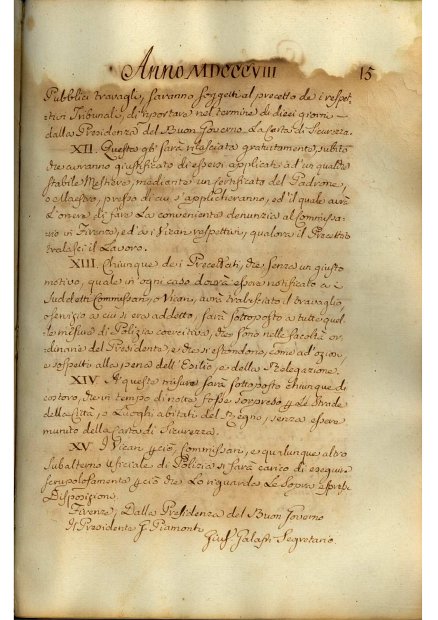 Anno MDCCCVIII 15
Pubblici travagli, saranno soggetti al precetto de i respet-
tivi Tribunali, di riportare nel termine di dieci giorni —
dalla Presidenza del Buon Governo La Carta di Sicurezza.
XII. Questa gli sarà rilasciata gratuitamente, subito
che avranno giustificato di essersi applicati a d'un qualche
stabile Mestiere, mediante un certificato del Padrone,
o Maestro, presso di cui s'applicheranno, ed il quale avrà
L'onere di fare La conveniente denunzia al Commissa-
rio in Firenze, ed a i Vicari respettivi, qualora il Precettato
tralasci il Lavoro.
XIII. Chiunque de i Precettati, che senza un giusto
motivo, quale in ogni caso dovrà essere notificato a i
Suddetti Commissari, o Vicari, avrà tralasciato il travaglio,
o servizio a cui si era addetto, sarà sottoposto a tutte quel-
le misure di Polizia coercitiva, che sono nelle facoltà or-
dinarie del Presidente, e che si estendono, come ad'oziosi,
e sospetti alla pena dell'Esilio, e della Relegazione.
XIV. A queste misure sarà sottoposto chiunque di
costoro, che in tempo di notte fosse sorpreso p le Strade
della Città, o Luoghi abitati del Regno, senza essere
munito della Carta di Sicurezza.
XV. I Vicari Commissari, e qualunque altro
Subalterno Ufiziale di Polizia si farà carico di eseguire
scrupolosamente ciò che Lo riguarda Le Sopra
Disposizioni.
Firenze, Dalla Presidenza del Buon Governo
Il Presidente G. Piamonti
Gius. Galassi Segretario.